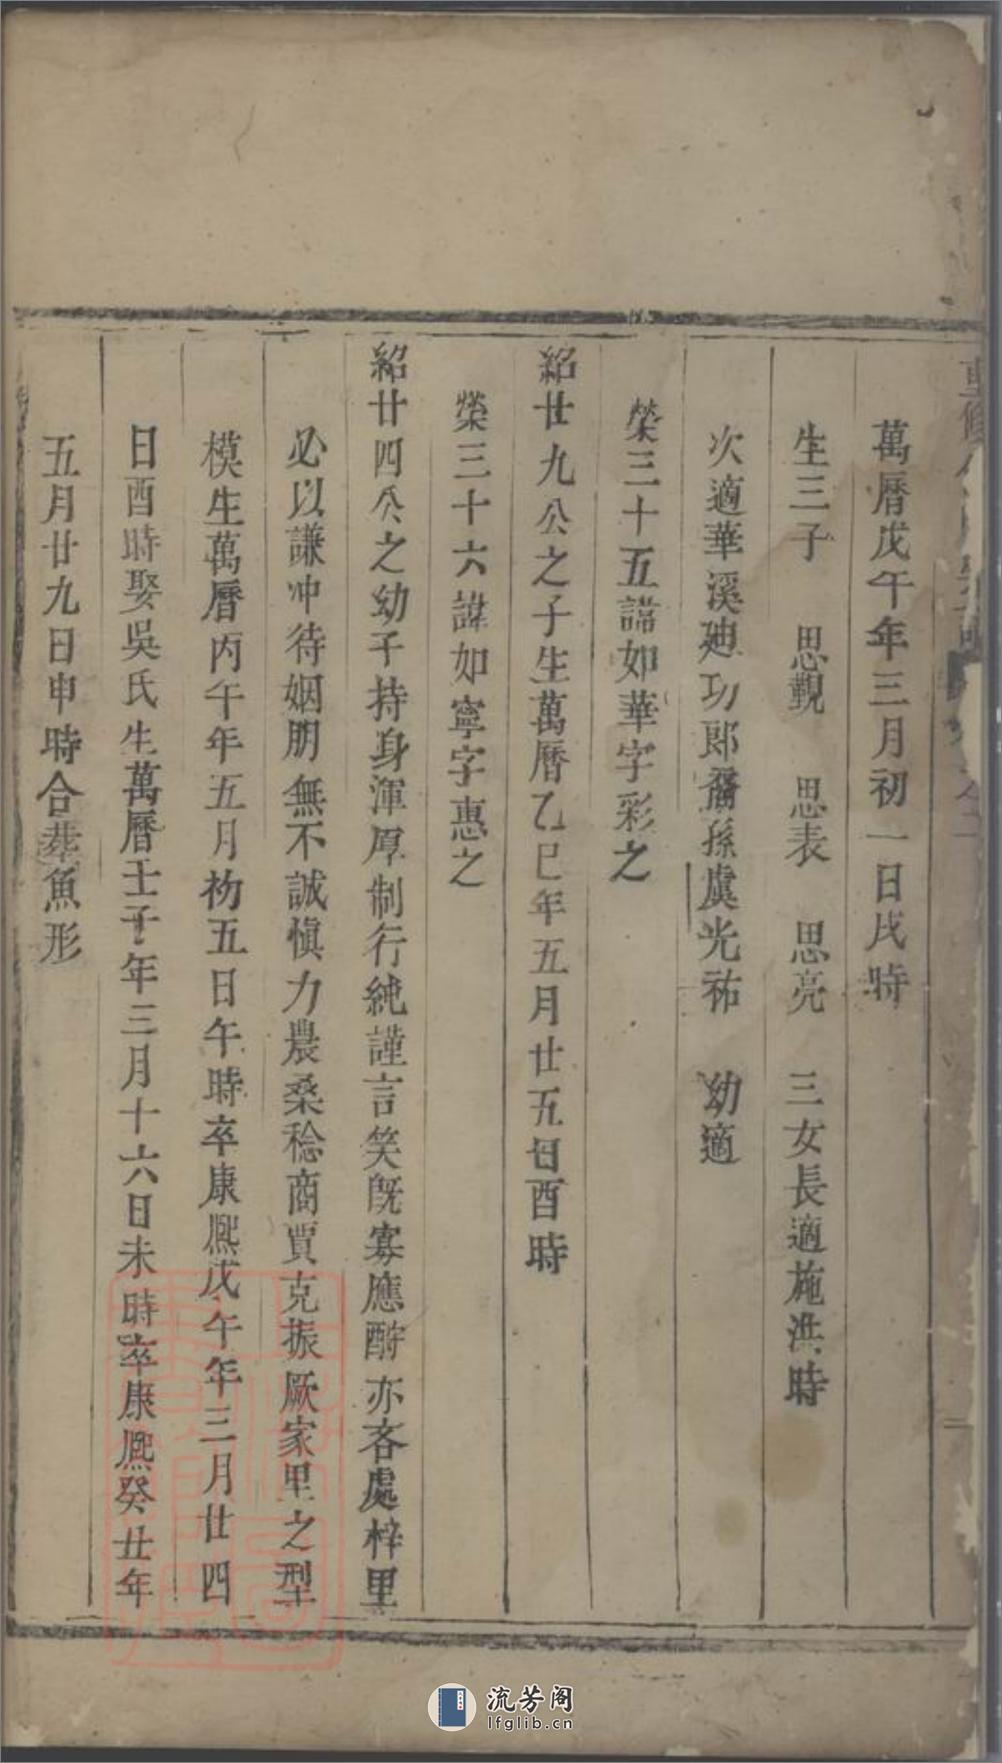 重修
萬曆戊午年三月初一日戌時
生三子 思觀 思表 思亮 三女長適施洪時
次適華溪廸功郎裔孫虞光祐 幼適
榮三十五諱如華字彩之
紹廿九公之子生萬曆乙巳年五月廿五日酉時
榮三十六諱如寧字惠之
紹廿四公之幼子持身渾厚制行純謹言笑旣寡應酧亦吝處梓里
必以謙冲待姻朋無不誠愼力農桑稔商賈克振厥家里之型
模生萬曆丙午年五月初五日午時卒康熙戊午年三月廿四
日酉時娶吳氏生萬曆壬子年三月十六日未時卒康熙癸丑年
五月廿九日申時合葬魚形
流芳阁
lfglib.cn